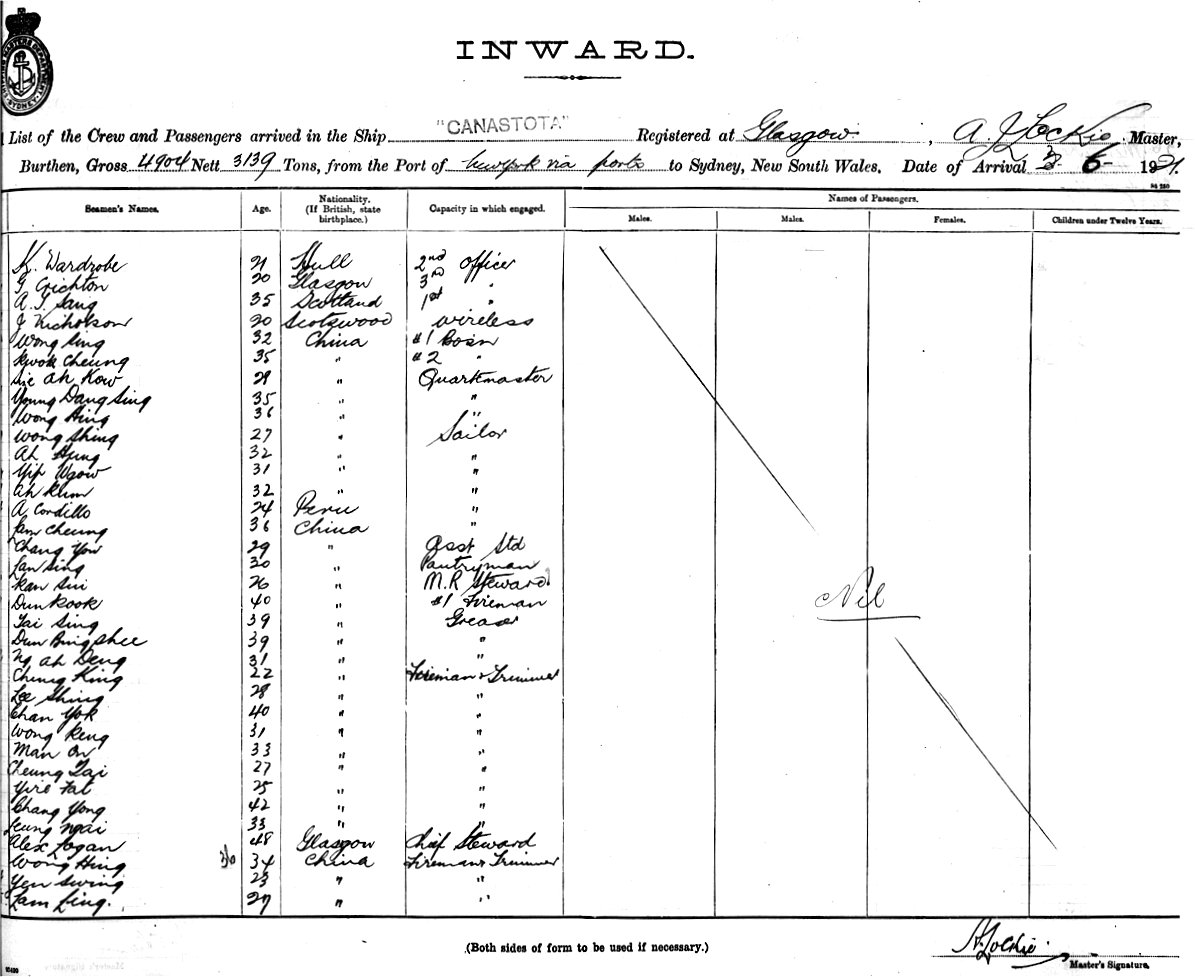 INWARD.
SHIPPING MASTERS DEPARTMENT SYDNEY
List of the Crew and Passengers arrived in the Ship "CANASTOTA" Registered at Glasgow, A. J. Lockie Master,
Burthen, Gross 4904 Nett 3139 Tons, from the Port of Newyork via ports to Sydney, New South Wales. Date of Arrival 3 6 1921.
Names of Passengers.
Seamen's Names. Age. Nationality. (If British, state birthplace.) Capacity in which engaged. Males. Males. Females. Children under Twelve Years.
K. Wardrobe 21 Hull 2nd Officer
G Crichton 20 Glasgow 3rd "
A. J. Sang 35 Scotland 1st "
J Nicholson 20 Scotswood wireless
Wong Sing 32 China #1 Bosn
Kwok Cheung 35 " #2 "
Sie Ah Kow 29 " Quartmaster
Young Dang Sing 35 " "
Wong Hing 36 " "
Wong Shing 27 " Sailor
Ah 32 " "
Yip 31 " "
Ah 32 " "
A Cordillo 24 Peru "
Lam Cheung 36 China "
Chang Yow 29 " Asst Std
Lan Sing 30 " Pantryman
Kan Sui 26 " M.R Steward
Dun Kook 40 " #1 Fireman
Tai Sing 39 " Greaser
Dun Bing Shee 39 " "
Ng Ah Deng 31 " "
Cheng King 22 " Fireman & Trimmer
Lee Shing 28 " "
Chan Yok 40 " "
Wong Keng 31 " "
Man On 33 " "
Cheung Tai 27 " "
Fat 25 " "
Chang Yong 42 " "
Leung Ngai 33 " "
Alex Logan 48 Glasgow Chief Steward
Wong Hing 34 China Fireman & Trimmer
Yen Swing 23 " "
Lam Ling. 27 " "
Nil
(Both sides of form to be used if necessary.)
A J Lockie
Master's Signature.